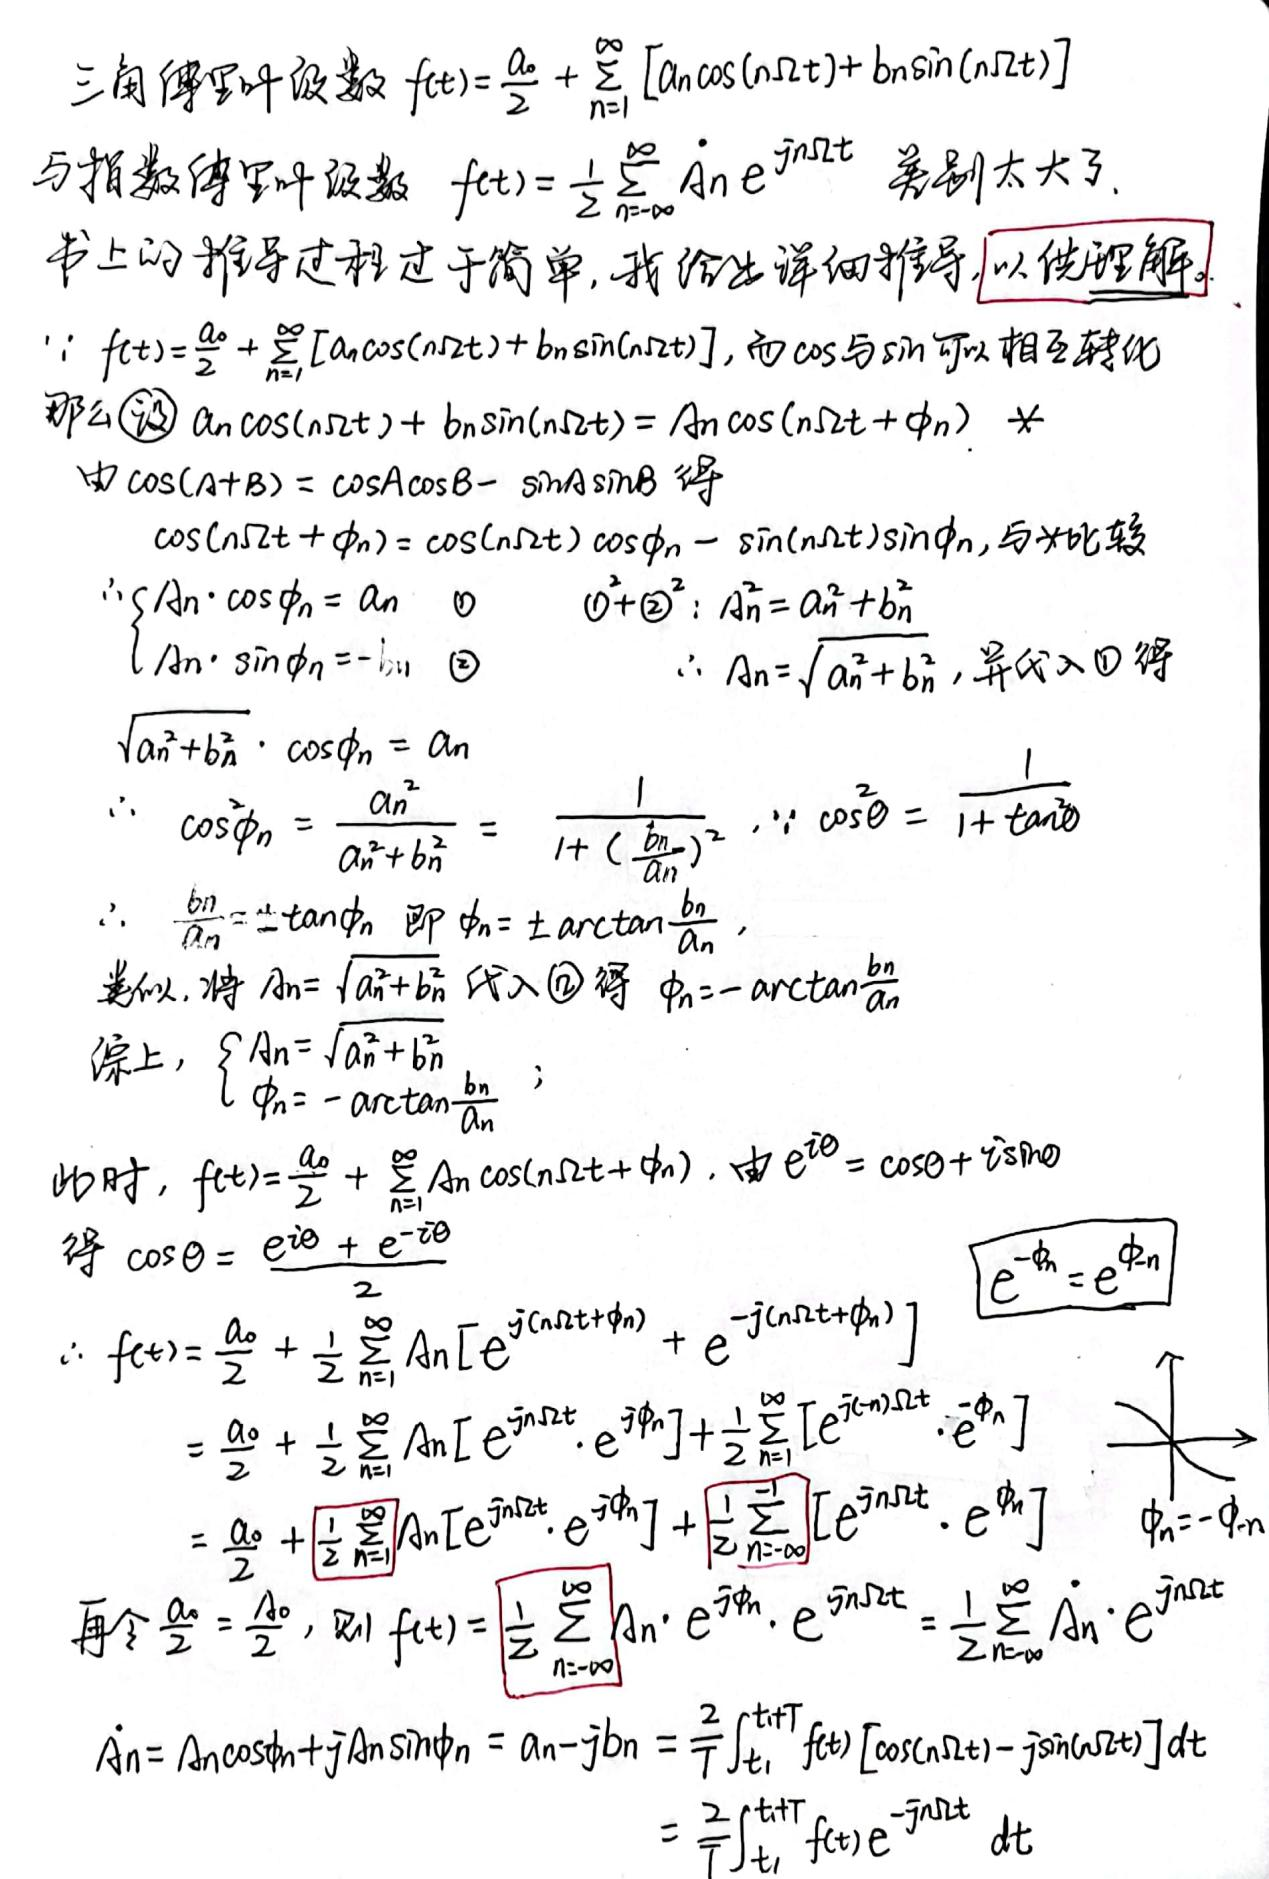 三角傅里叶级数 f(t)=a₀/2 + ∑_{n=1}^{∞} [aₙcos(nΩt)+bₙsin(nΩt)]
与指数傅里叶级数 f(t)=1/2 ∑_{n=-∞}^{∞} Ȧₙ e^{jnΩt} 差别太大了.
书上的推导过程过于简单,我给出详细推导,以供理解。
∵ f(t)=a₀/2 + ∑_{n=1}^{∞} [aₙcos(nΩt)+bₙsin(nΩt)],而cos与sin可以相互转化
那么设 aₙcos(nΩt)+bₙsin(nΩt)=Aₙcos(nΩt+ϕₙ) *
由cos(A+B)=cosAcosB-sinAsinB 得
cos(nΩt+ϕₙ)=cos(nΩt)cosϕₙ-sin(nΩt)sinϕₙ,与*比较
∴ { Aₙ·cosϕₙ=aₙ ① ①²+②²: Aₙ²=aₙ²+bₙ²
Aₙ·sinϕₙ=-bₙ ② ∴ Aₙ=√(aₙ²+bₙ²),并代入①得
√(aₙ²+bₙ²)·cosϕₙ=aₙ
∴ cos²ϕₙ = aₙ²/(aₙ²+bₙ²) = 1/(1+(bₙ/aₙ)²),∵ cos²θ = 1/(1+tan²θ)
∴ bₙ/aₙ=±tanϕₙ 即 ϕₙ=±arctan bₙ/aₙ,
类似,将 Aₙ=√(aₙ²+bₙ²) 代入②得 ϕₙ=-arctan bₙ/aₙ
综上, { Aₙ=√(aₙ²+bₙ²)
ϕₙ=-arctan bₙ/aₙ ;
此时, f(t)=a₀/2 + ∑_{n=1}^{∞} Aₙcos(nΩt+ϕₙ),由 e^{iθ}=cosθ+isinθ
得 cosθ=(e^{iθ}+e^{-iθ})/2
e^{-ϕₙ}=e^{ϕ₋ₙ}
∴ f(t)=a₀/2 + 1/2 ∑_{n=1}^{∞} Aₙ[e^{j(nΩt+ϕₙ)} + e^{-j(nΩt+ϕₙ)}]
=a₀/2 + 1/2 ∑_{n=1}^{∞} Aₙ[e^{jnΩt}·e^{jϕₙ}]+1/2 ∑_{n=1}^{∞} [e^{j(-n)Ωt}·e^{-ϕₙ}]
=a₀/2 + 1/2 ∑_{n=1}^{∞} Aₙ[e^{jnΩt}·e^{jϕₙ}]+1/2 ∑_{n=-∞}^{-1} [e^{jnΩt}·e^{ϕₙ}]
ϕₙ=-ϕ₋ₙ
再令 a₀/2=A₀/2,则 f(t)=1/2 ∑_{n=-∞}^{∞} Aₙ·e^{jϕₙ}·e^{jnΩt}=1/2 ∑_{n=-∞}^{∞} Ȧₙ·e^{jnΩt}
Ȧₙ=Aₙcosϕₙ+jAₙsinϕₙ=aₙ-jbₙ=2/T ∫_{t₁}^{t₁+T} f(t)[cos(nΩt)-jsin(nΩt)]dt
=2/T ∫_{t₁}^{t₁+T} f(t)e^{-jnΩt} dt